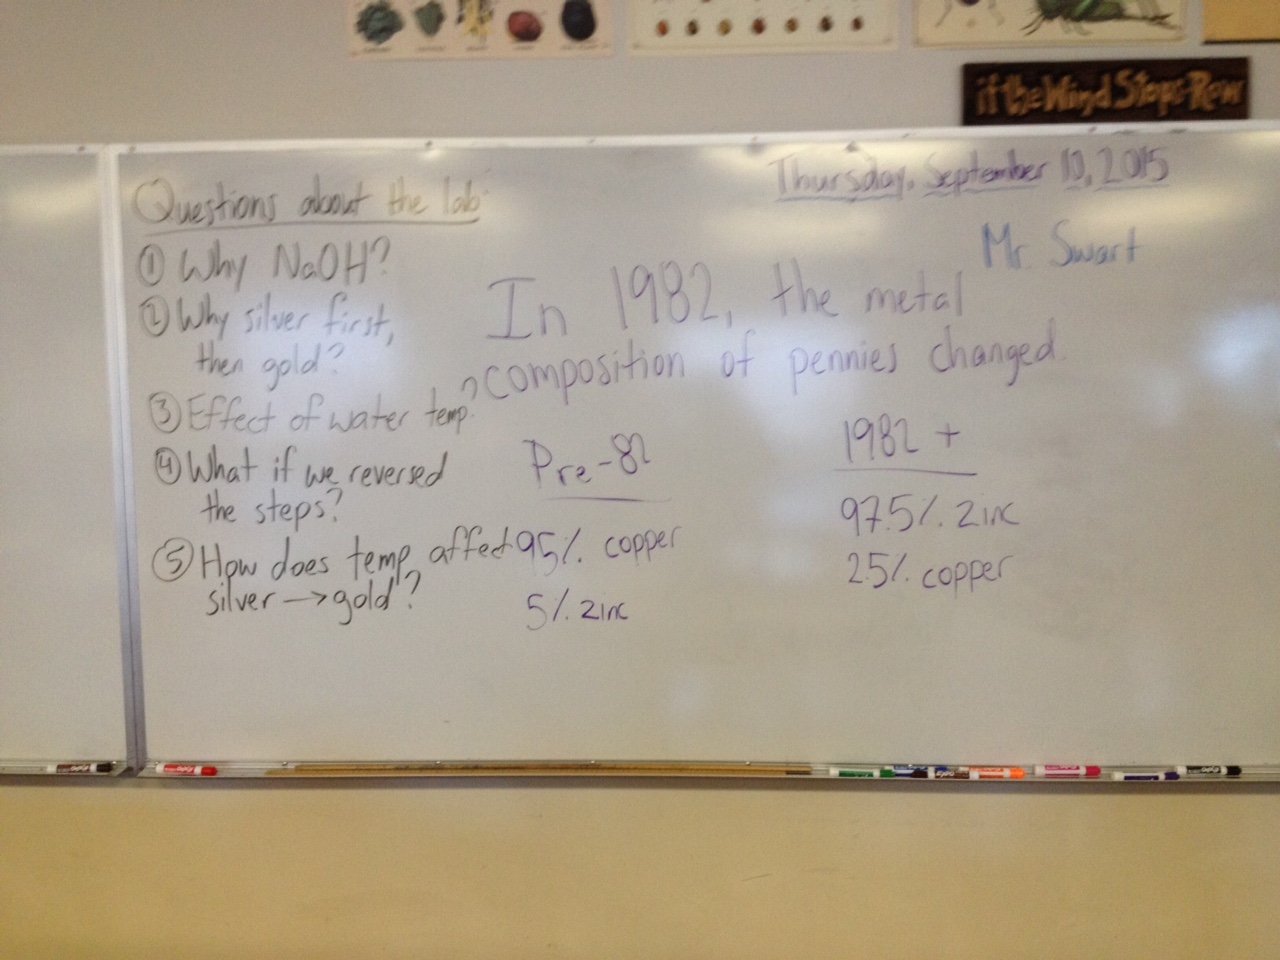 if the Wind Stops-Row
Thursday, September 10, 2015
Mr. Swart
Questions about the lab
① Why NaOH?
② Why silver first,
then gold?
③ Effect of water temp?
④ What if we reversed
the steps?
⑤ How does temp affect
silver → gold?
In 1982, the metal
composition of pennies changed.
Pre-82
95% copper
5% zinc
1982 +
97.5% zinc
2.5% copper